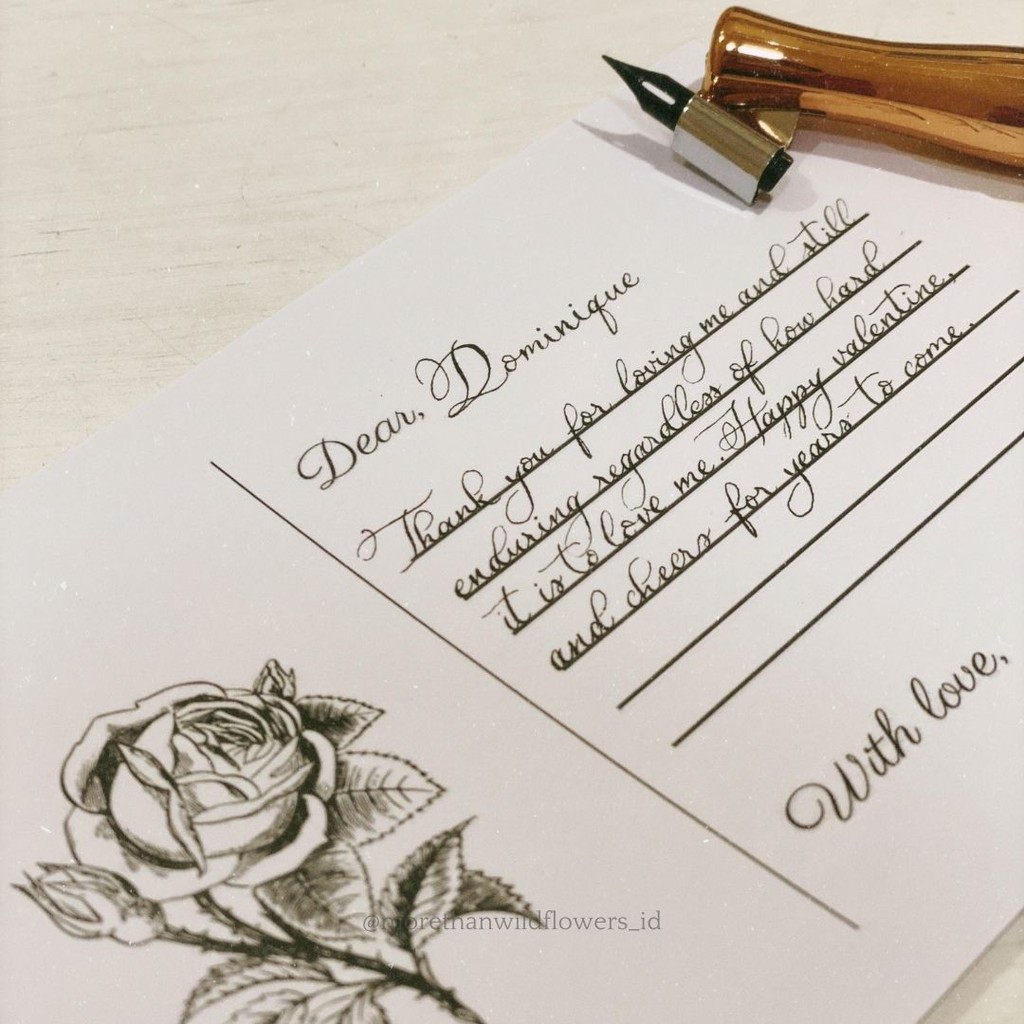 Dear, Dominique
Thank you for loving me and still
enduring regardless of how hard
it is to love me. Happy valentine,
and cheers for years to come.
With love,
@morethanwildflowers_id